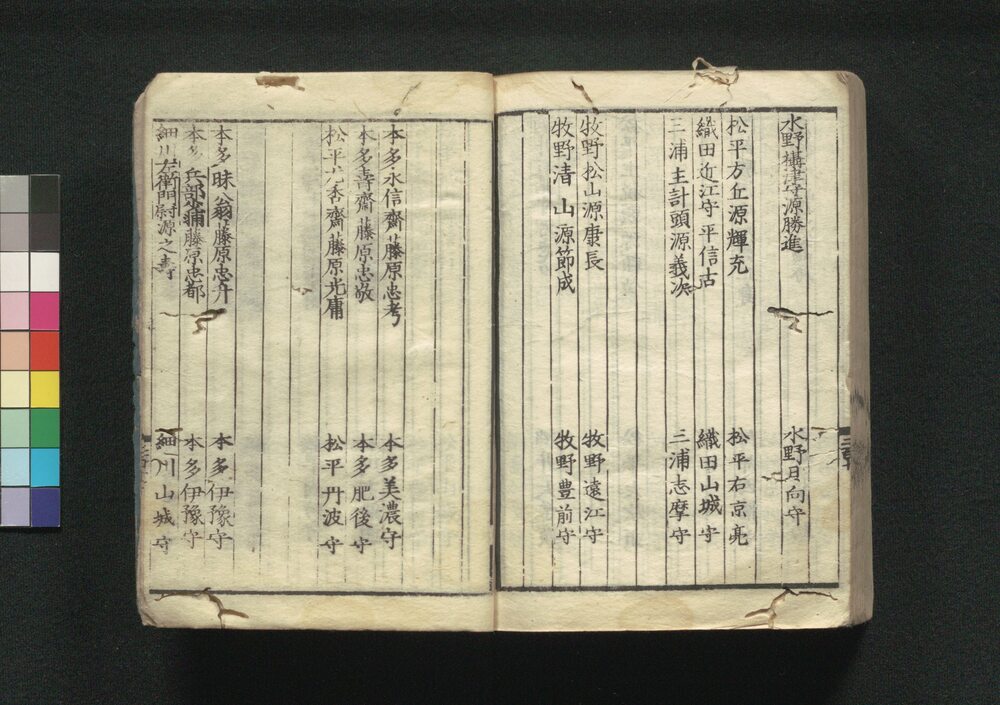 水野摂津守源勝進 水野日向守
松平方丘源輝充 松平右京亮
織田近江守平信古 織田山城守
三浦主計頭源義次 三浦志摩守
牧野松山源康長 牧野遠江守
牧野清山源節成 牧野豊前守
本多永信齋藤原忠考 本多美濃守
本多壽齋藤原忠敬 本多肥後守
松平 齋藤原光庸 松平丹波守
本多昧翁藤原忠升 本多伊豫守
本多兵部 藤原忠都 本多伊豫守
細川左衛門尉源之壽 細川山城守